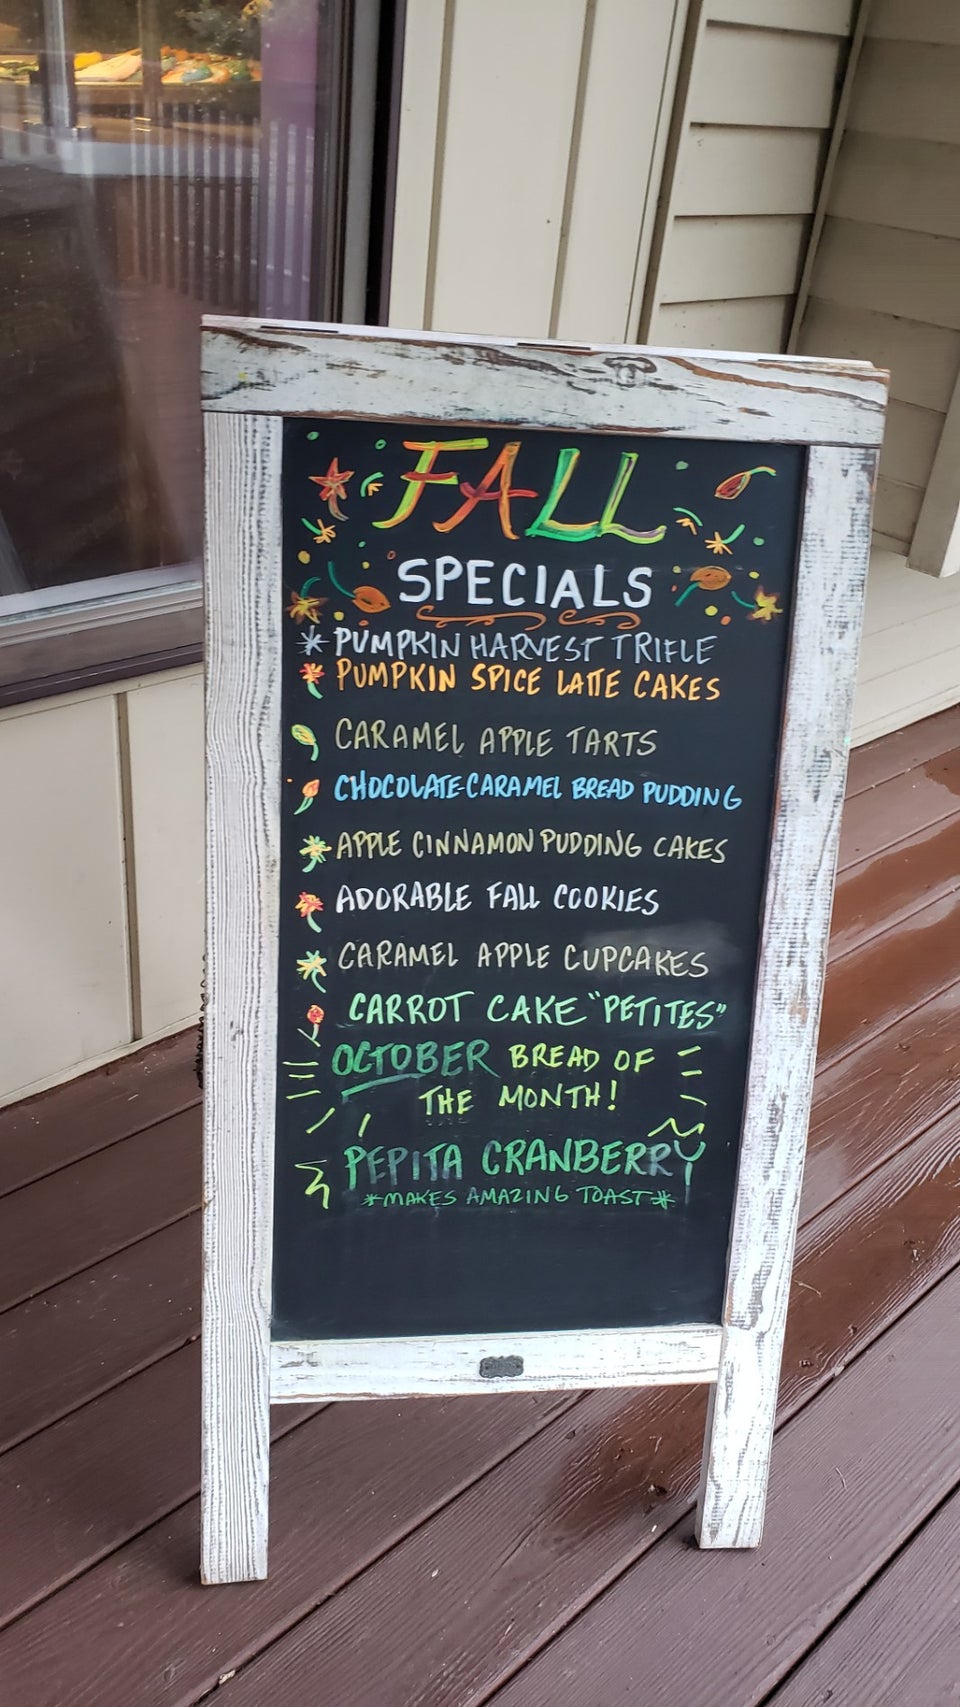 FALL
SPECIALS
* PUMPKIN HARVEST TRIFLE
PUMPKIN SPICE LATTE CAKES
CARAMEL APPLE TARTS
CHOCOLATE-CARAMEL BREAD PUDDING
APPLE CINNAMON PUDDING CAKES
ADORABLE FALL COOKIES
CARAMEL APPLE CUPCAKES
CARROT CAKE "PETITES"
OCTOBER BREAD OF
THE MONTH!
PEPITA CRANBERRY
*MAKES AMAZING TOAST*